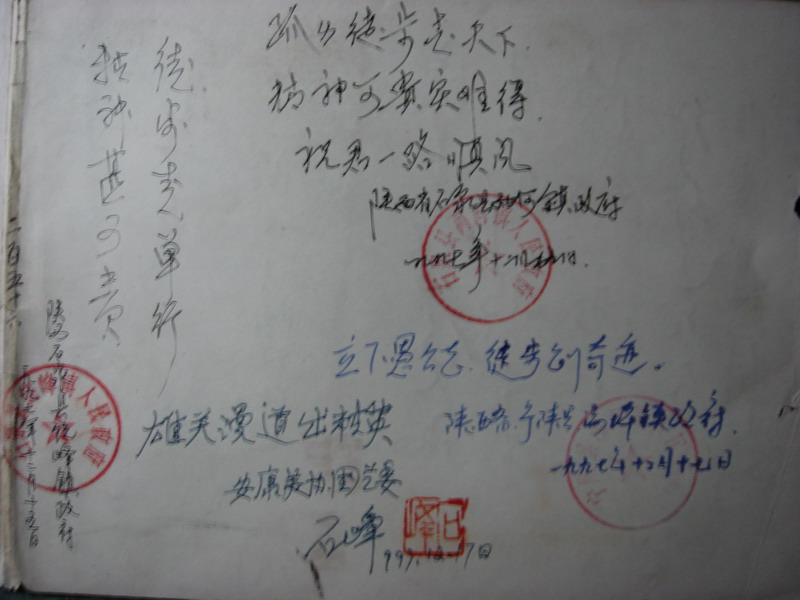 孤身徒步走天下.
精神可贵实难得.
祝君一路顺风
陕西省石泉县 镇政府
一九九七年十二月 日.
徒步走单行
精神甚可贵
二百五十六
陕西石泉县 峰镇政府
一九九七年十二月十五日
立下愚公志.徒步创奇迹。
陕西省宁陕县 镇政府.
一九九七年十二月十七日
雄关漫道出精英
安康美协国艺委
石峰
1997.12.17日